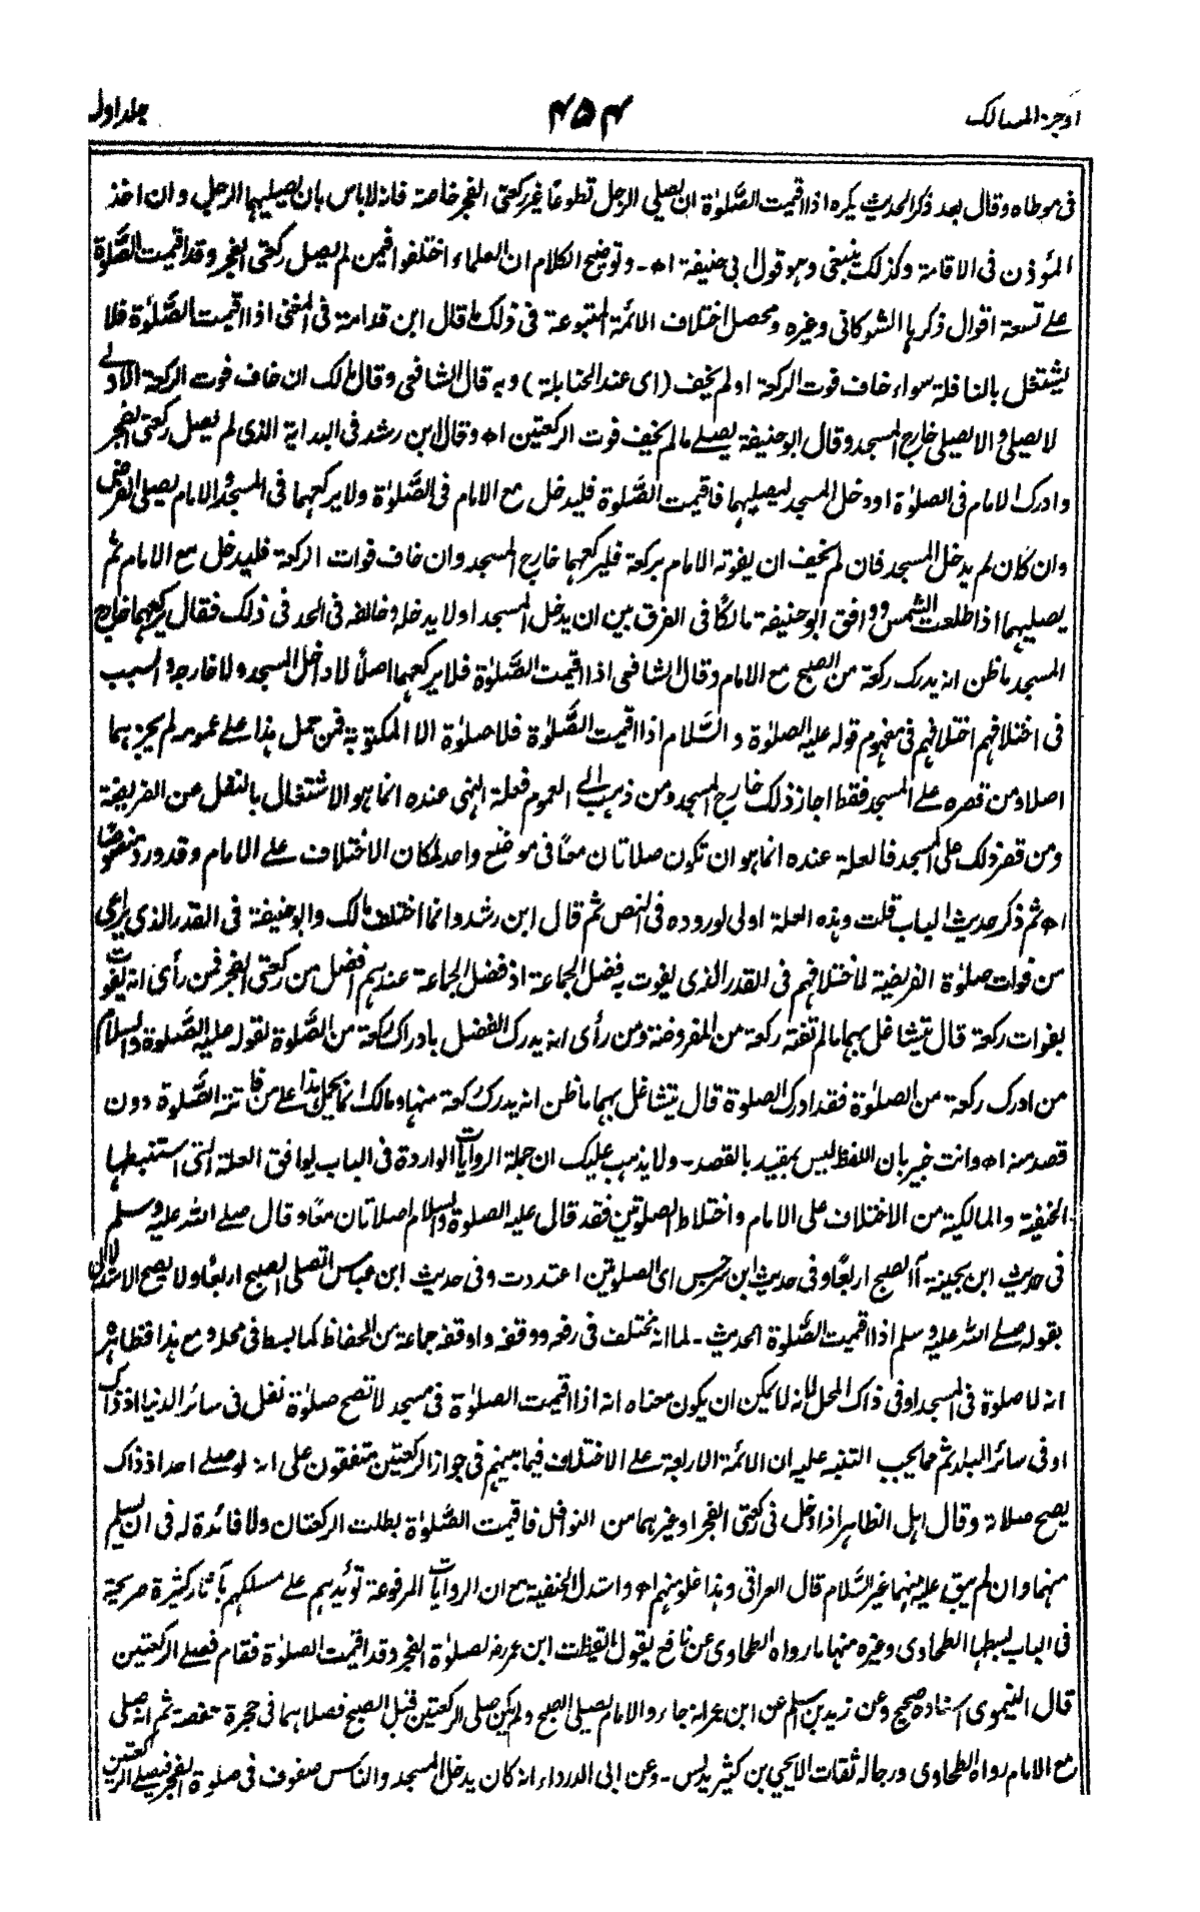 اوجز المسالك
۴۵۴
جلد اول
فى موطاه وقال بعد ذكر الحديث يكره اذا اقيمت الصَّلوٰة ان يصلى الرجل تطوعًا غير ركعتى الفجر خاصة فانه لا باس بان يصليهما الرجل وان اخذ
المؤذن فى الاقامة وكذلك ينبغى وهو قول ابى حنيفة اھ - وتوضيح الكلام ان العلماء اختلفوا فيمن لم يصل ركعتى الفجر وقد اقيمت الصَّلوٰة
على تسعة اقوال ذكرها الشوكانى وغيره ومحصل اختلاف الائمة المتبوعة فى ذلك ما قال ابن قدامة فى المغنى اذا اقيمت الصَّلوٰة فلا
يشتغل بالنافلة سواء خاف فوت الركعة او لم يخف (اى عند الحنابلة) وبه قال الشافعى وقال مالك ان خاف فوت الركعة الاولى
لا يصلى والا يصلى خارج المسجد وقال ابو حنيفة يصلى ما لم يخف فوت الركعتين اھ وقال ابن رشد فى البداية الذى لم يصل ركعتى الفجر
وادرك الامام فى الصلوٰة او دخل المسجد ليصليهما فاقيمت الصَّلوٰة فليدخل مع الامام فى الصَّلوٰة ولا يركعهما فى المسجد والامام يصلى الفرض
وان كان لم يدخل المسجد فان لم يخف ان يفوته الامام بركعة فليركعهما خارج المسجد وان خاف فوات الركعة فليدخل مع الامام ثم
يصليهما اذا طلعت الشمس ووافق ابو حنيفة مالكًا فى الفرق بين ان يدخل المسجد او لا يدخله وخالفه فى الحد فى ذلك فقال يركعهما خارج
المسجد ما ظن انه يدرك ركعة من الصبح مع الامام وقال الشافعى اذا اقيمت الصَّلوٰة فلا يركعهما اصلًا لا داخل المسجد ولا خارجه والسبب
فى اختلافهم اختلافهم فى مفهوم قوله عليه الصلوٰة والسَّلام اذا اقيمت الصَّلوٰة فلا صلوٰة الا المكتوبة فمن حمل هذا على عمومه لم يجز هما
اصلا ومن قصره على المسجد فقط اجاز ذلك خارج المسجد ومن ذهب الى العموم فعلة النهى عنده انما هو الاشتغال بالنفل من الفريضة
ومن قصر ذلك على المسجد فالعلة عنده انما هو ان تكون صلاتان معًا فى موضع واحد لمكان الاختلاف على الامام وقد ورد منصوصًا
اھ ثم ذكر حديث الباب قلت وهذه العلة اولى لوروده فى النص ثم قال ابن رشد وانما اختلف مالك وابو حنيفة فى القدر الذى يراعى
من فوات صلوٰة الفريضة لاختلافهم فى القدر الذى يفوت به فضل الجماعة اذ فضل الجماعة عندهم افضل من ركعتى الفجر فمن رأى انه يفوت
بفوات ركعة قال يتشاغل بهما ما لم تفته ركعة من المفروضة ومن رأى انه يدرك الفضل بادراك ركعة من الصَّلوٰة لقوله عليه الصَّلوٰة والسلام
من ادرك ركعة من الصلوٰة فقد ادرك الصلوٰة قال يتشاغل بهما ما ظن انه يدرك ركعة منها ومالك انما يحمل هذا على من فاتته الصَّلوٰة دون
قصد منه اھ وانت خبير بان اللفظ ليس بمقيد بالقصد - ولا يذهب عليك ان جملة الروايات الواردة فى الباب يوافق العلة التى استنبطها
الحنفية والمالكية من الاختلاف على الامام واختلاط الصلوتين فقد قال عليه الصلوٰة والسلام اصلاتان معًا وقال صلى الله عليه وسلم
فى حديث ابن بحينة آالصبح اربعًا وفى حديث ابن سرجس اى الصلوتين اعتددت وفى حديث ابن عباس اتصلى الصبح اربعًا ولا يصح الاستدلال
بقوله صلى الله عليه وسلم اذا اقيمت الصَّلوٰة الحديث - لما انه مختلف فى رفعه ووقفه واوقفه جماعة من الحفاظ كما بسط فى محله ومع هذا فظاهر
انه لا صلوة فى المسجد او فى ذاك المحل لانه لا يمكن ان يكون معناه انه اذا اقيمت الصلوٰة فى مسجد لا تصح صلوٰة نفل فى سائر الدنيا اذ ذاك
او فى سائر البلد ثم مما يجب التنبه عليه ان الائمة الاربعة على الاختلاف فيما بينهم فى جواز الركعتين متفقون على انه لو صلى احد اذ ذاك
يصح صلاته وقال اهل الظاهر اذا دخل فى ركعتى الفجر او غيرهما من النوافل فاقيمت الصَّلوٰة بطلت الركعتان ولا فائدة له فى ان يسلم
منهما وان لم يبق عليه منهما غير السَّلام قال العراقى وهذا غلو منهم اھ واستدل الحنفية مع ان الروايات المرفوعة تؤيدهم على مسلكهم بآثار كثيرة صريحة
فى الباب بسطها الطحاوى وغيره منها ما رواه الطحاوى عن نافع يقول ايقظت ابن عمر رضـ لصلوٰة الفجر وقد اقيمت الصلوٰة فقام فصلى الركعتين
قال النيموى اسناده صحيح وعن زيد بن اسلم عن ابن عمر انه جاء والامام يصلى الصبح ولم يكن صلى الركعتين قبل الصبح فصلاهما فى حجرة حفصة ثم انه صلى
مع الامام رواه الطحاوى ورجاله ثقات الا يحيى بن كثير يدلس - وعن ابى الدرداء انه كان يدخل المسجد والناس صفوف فى صلوة الفجر فيصلى الركعتين